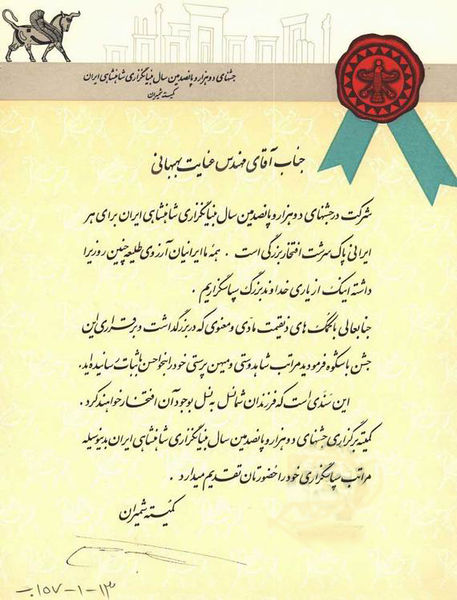 جشنهای دو هزار و پانصدمین سال بنیانگزاری شاهنشاهی ایران
کمیته شمیران
جناب آقای مهندس عنایت بهبهانی
شرکت در جشنهای دو هزار و پانصدمین سال بنیانگزاری شاهنشاهی ایران برای هر
ایرانی پاک سرشت افتخار بزرگی است . همه ما ایرانیان آرزوی طلیعه چنین روزیرا
داشته اینک از یاری خداوند بزرگ سپاسگزاریم .
جنابعالی با کمک های ذیقیمت مادی و معنوی که در بزرگداشت و برقراری این
جشن باشکوه فرمودید مراتب شاهدوستی و میهن پرستی خود را بنحو احسن باثبات رسانیده‌اید.
این سندی است که فرزندان شما نسل به نسل بوجود آن افتخار خواهند کرد .
کمیته برگزاری جشنهای دو هزار و پانصدمین سال بنیانگزاری شاهنشاهی ایران بدینوسیله
مراتب سپاسگزاری خود را حضورتان تقدیم میدارد .
کمیته شمیران
۱۵۷-۱-۱۳